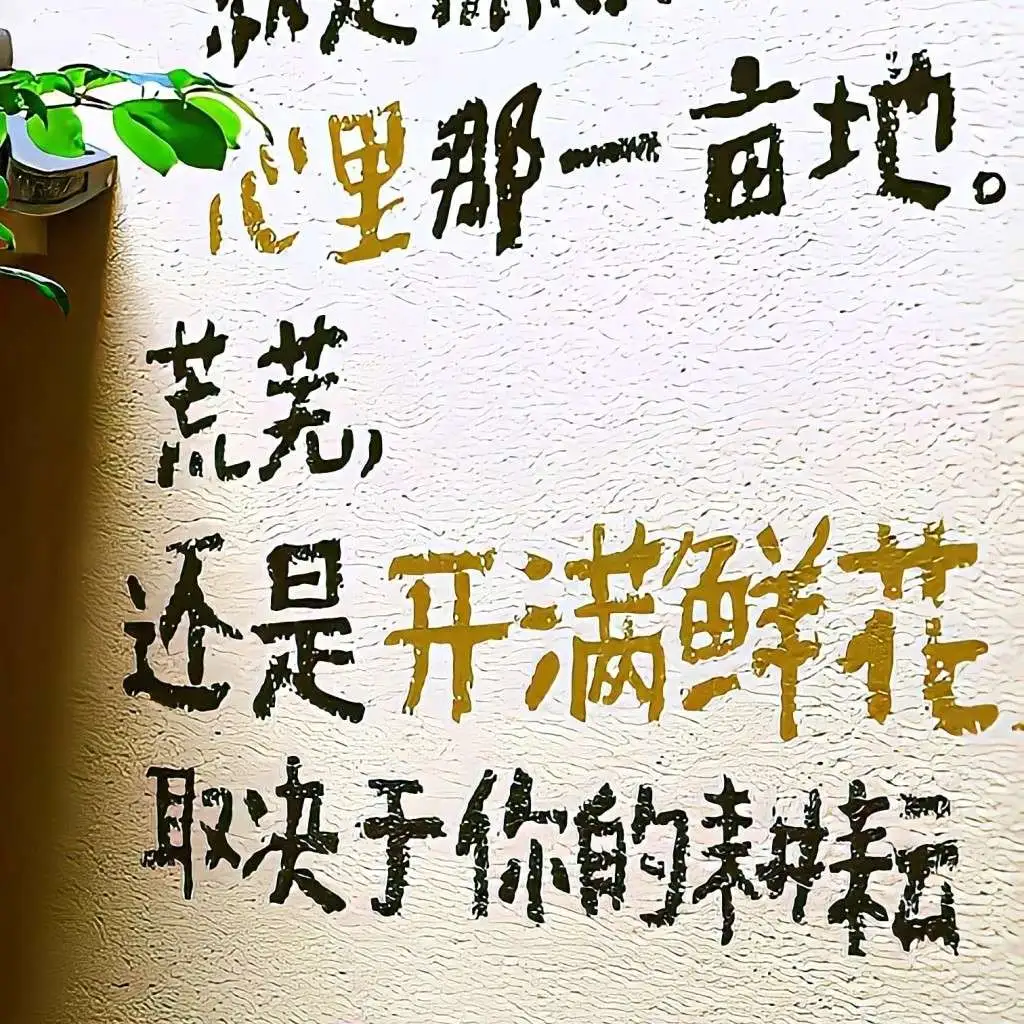 心里那一亩地。
荒芜,
还是开满鲜花
取决于你的耕耘